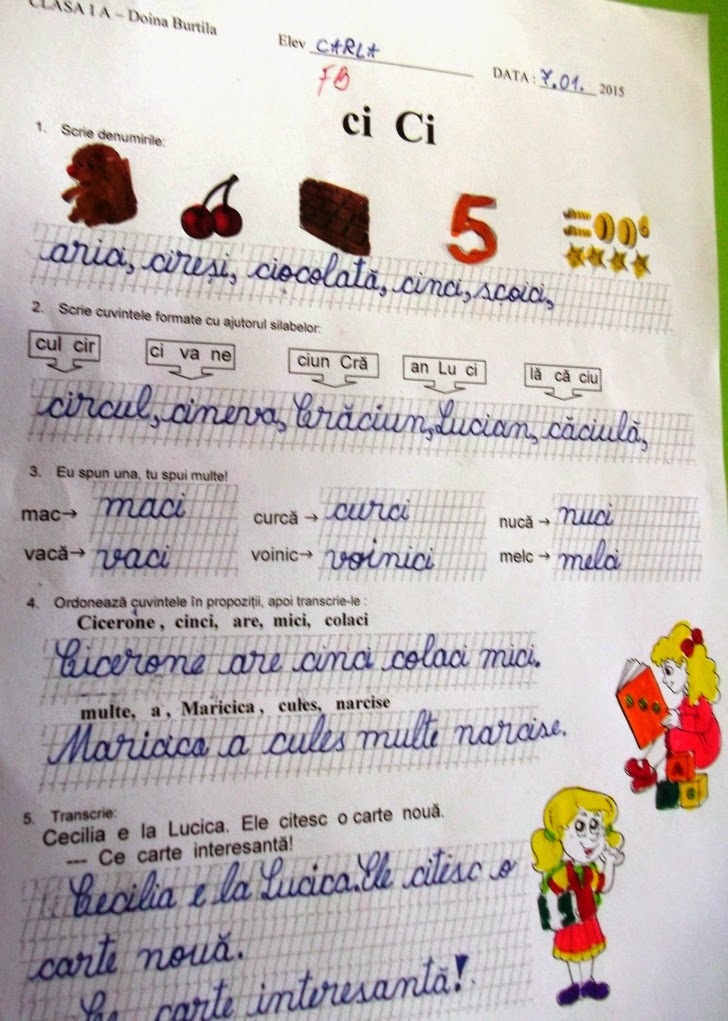 CLASA I A – Doina Burtila
Elev CARLA
DATA: 7.01. 2015
FB
ci Ci
1. Scrie denumirile:
5
arici, cireși, ciocolată, cinci, scoici,
2. Scrie cuvintele formate cu ajutorul silabelor:
cul cir
ci va ne
ciun Cră
an Lu ci
lă că ciu
circul, cineva, Crăciun, Lucian, căciulă,
3. Eu spun una, tu spui multe!
mac→ maci curcă → curci nucă → nuci
vacă→ vaci voinic→ voinici melc → melci
4. Ordonează cuvintele în propoziții, apoi transcrie-le :
Cicerone , cinci, are, mici, colaci
Cicerone are cinci colaci mici.
multe, a , Maricica , cules, narcise
Maricica a cules multe narcise.
5. Transcrie:
Cecilia e la Lucica. Ele citesc o carte nouă.
--- Ce carte interesantă!
Cecilia e la Lucica. Ele citesc o
carte nouă.
Ce carte interesantă!